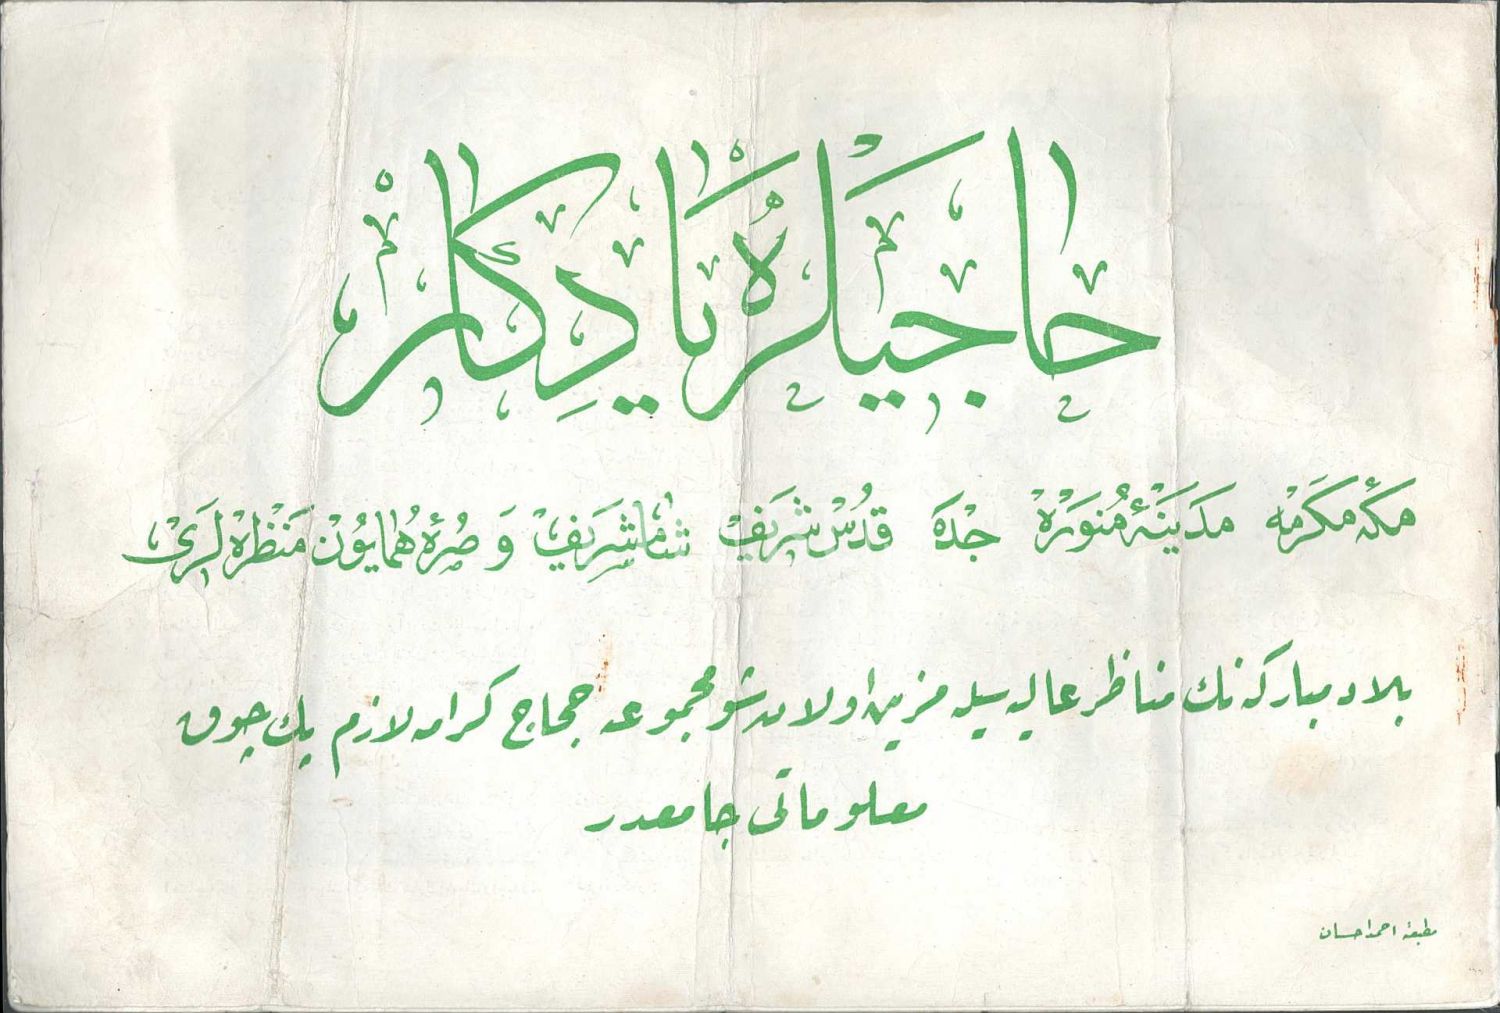 حاجیلره یادكار
مكۀ مكرمه مدینۀ منوره جده قدس شریف شام شریف و صرۀ همایون منظره لری
بلاد مباركه نك مناظر عالیه سیله مزین اولان شو مجموعه حجاج كرامه لازم پك چوق
معلوماتی جامعدر
مطبعۀ احمد احسان